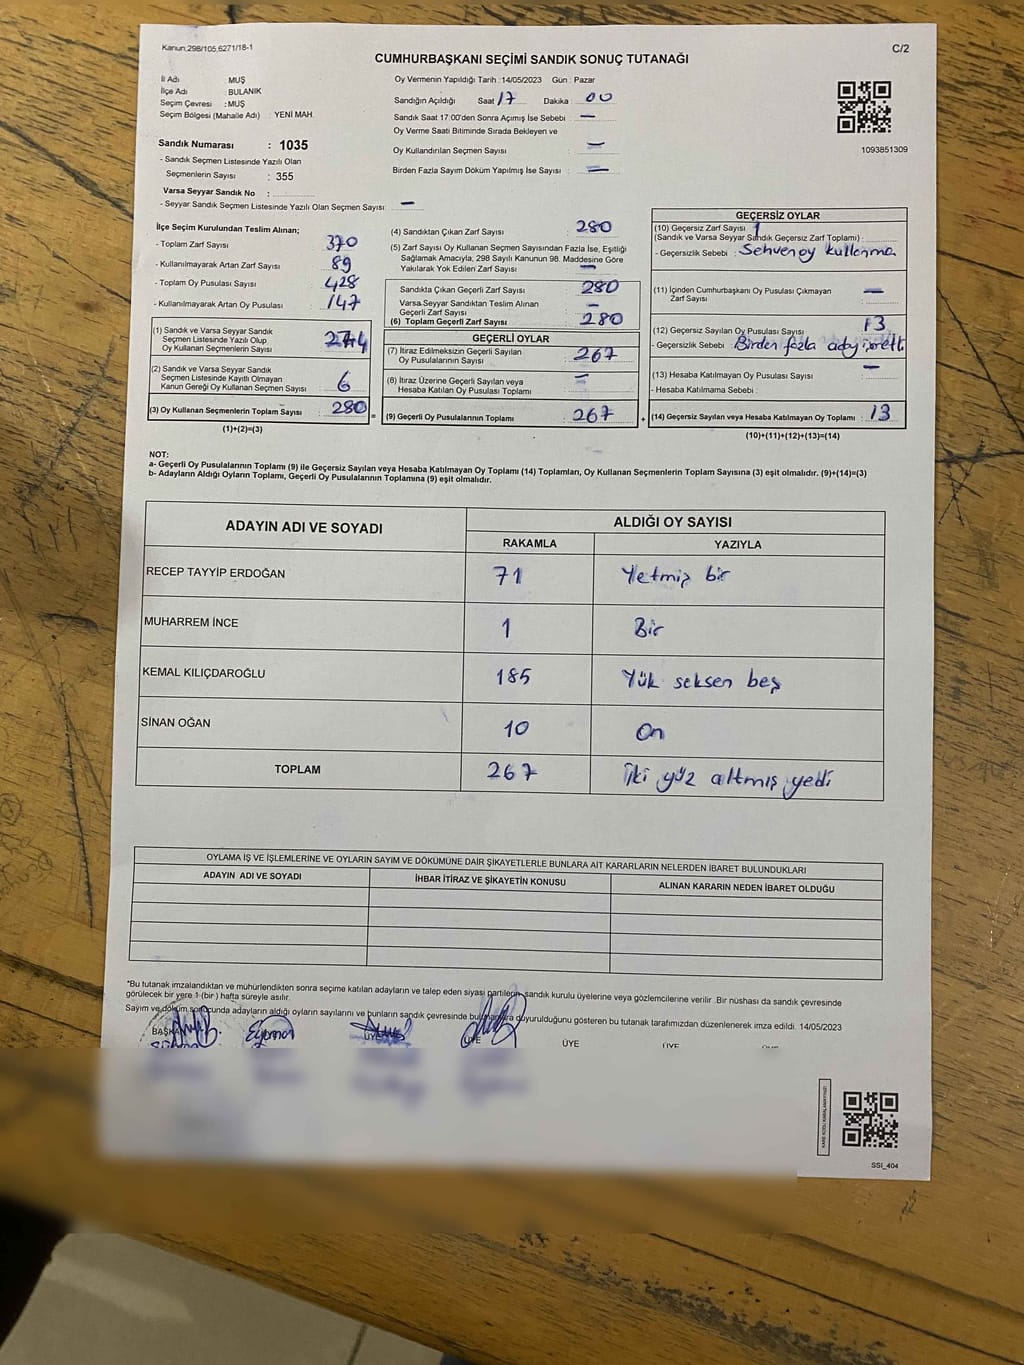 Kanun:298/105,6271/18-1
C/2
CUMHURBAŞKANI SEÇİMİ SANDIK SONUÇ TUTANAĞI
İl Adı : MUŞ
İlçe Adı : BULANIK
Seçim Çevresi : MUŞ
Seçim Bölgesi (Mahalle Adı) : YENİ MAH.
Sandık Numarası : 1035
- Sandık Seçmen Listesinde Yazılı Olan
Seçmenlerin Sayısı : 355
Varsa Seyyar Sandık No :
- Seyyar Sandık Seçmen Listesinde Yazılı Olan Seçmen Sayısı: —
Oy Vermenin Yapıldığı Tarih :14/05/2023 Gün : Pazar
Sandığın Açıldığı Saat 17 Dakika : 00
Sandık Saat 17:00'den Sonra Açımış İse Sebebi : —
Oy Verme Saati Bitiminde Sırada Bekleyen ve
Oy Kullandırılan Seçmen Sayısı : —
Birden Fazla Sayım Döküm Yapılmış İse Sayısı : —
1093851309
İlçe Seçim Kurulundan Teslim Alınan;
- Toplam Zarf Sayısı : 370
- Kullanılmayarak Artan Zarf Sayısı : 89
- Toplam Oy Pusulası Sayısı : 428
- Kullanılmayarak Artan Oy Pusulası : 147
(1) Sandık ve Varsa Seyyar Sandık
Seçmen Listesinde Yazılı Olup
Oy Kullanan Seçmenlerin Sayısı : 274
(2) Sandık ve Varsa Seyyar Sandık
Seçmen Listesinde Kayıtlı Olmayan
Kanun Gereği Oy Kullanan Seçmen Sayısı : 6
(3) Oy Kullanan Seçmenlerin Toplam Sayısı : 280
(1)+(2)=(3)
(4) Sandıktan Çıkan Zarf Sayısı : 280
(5) Zarf Sayısı Oy Kullanan Seçmen Sayısından Fazla İse, Eşitliği
Sağlamak Amacıyla, 298 Sayılı Kanunun 98. Maddesine Göre
Yakılarak Yok Edilen Zarf Sayısı : —
Sandıkta Çıkan Geçerli Zarf Sayısı : 280
Varsa Seyyar Sandıktan Teslim Alınan
Geçerli Zarf Sayısı : —
(6) Toplam Geçerli Zarf Sayısı : 280
GEÇERLİ OYLAR
(7) İtiraz Edilmeksizin Geçerli Sayılan
Oy Pusulalarının Sayısı : 267
(8) İtiraz Üzerine Geçerli Sayılan veya
Hesaba Katılan Oy Pusulası Toplamı : —
(9) Geçerli Oy Pusulalarının Toplamı : 267
GEÇERSİZ OYLAR
(10) Geçersiz Zarf Sayısı 1
(Sandık ve Varsa Seyyar Sandık Geçersiz Zarf Toplamı) :
- Geçersizlik Sebebi : Sehven oy kullanma
(11) İçinden Cumhurbaşkanı Oy Pusulası Çıkmayan
Zarf Sayısı : —
(12) Geçersiz Sayılan Oy Pusulası Sayısı : 13
- Geçersizlik Sebebi : Birden fazla aday
(13) Hesaba Katılmayan Oy Pusulası Sayısı : —
- Hesaba Katılmama Sebebi :
(14) Geçersiz Sayılan veya Hesaba Katılmayan Oy Toplamı : 13
(10)+(11)+(12)+(13)=(14)
NOT:
a- Geçerli Oy Pusulalarının Toplamı (9) ile Geçersiz Sayılan veya Hesaba Katılmayan Oy Toplamı (14) Toplamları, Oy Kullanan Seçmenlerin Toplam Sayısına (3) eşit olmalıdır. (9)+(14)=(3)
b- Adayların Aldığı Oyların Toplamı, Geçerli Oy Pusulalarının Toplamına (9) eşit olmalıdır.
ADAYIN ADI VE SOYADI ALDIĞI OY SAYISI
RAKAMLA YAZIYLA
RECEP TAYYİP ERDOĞAN 71 Yetmiş bir
MUHARREM İNCE 1 Bir
KEMAL KILIÇDAROĞLU 185 Yük seksen beş
SİNAN OĞAN 10 On
TOPLAM 267 İki yüz altmış yedi
OYLAMA İŞ VE İŞLEMLERİNE VE OYLARIN SAYIM VE DÖKÜMÜNE DAİR ŞİKAYETLERLE BUNLARA AİT KARARLARIN NELERDEN İBARET BULUNDUKLARI
ADAYIN ADI VE SOYADI İHBAR İTİRAZ VE ŞİKAYETİN KONUSU ALINAN KARARIN NEDEN İBARET OLDUĞU
*Bu tutanak imzalandıktan ve mühürlendikten sonra seçime katılan adayların ve talep eden siyasi partilerin sandık kurulu üyelerine veya gözlemcilerine verilir .Bir nüshası da sandık çevresinde
görülecek bir yere 1 (bir ) hafta süreyle asılır.
Sayım ve döküm sonucunda adayların aldığı oyların sayılarını ve bunların sandık çevresinde bulunanlara duyurulduğunu gösteren bu tutanak tarafımızdan düzenlenerek imza edildi. 14/05/2023
ÜYE ÜYE ÜYE ÜYE
SSI_404